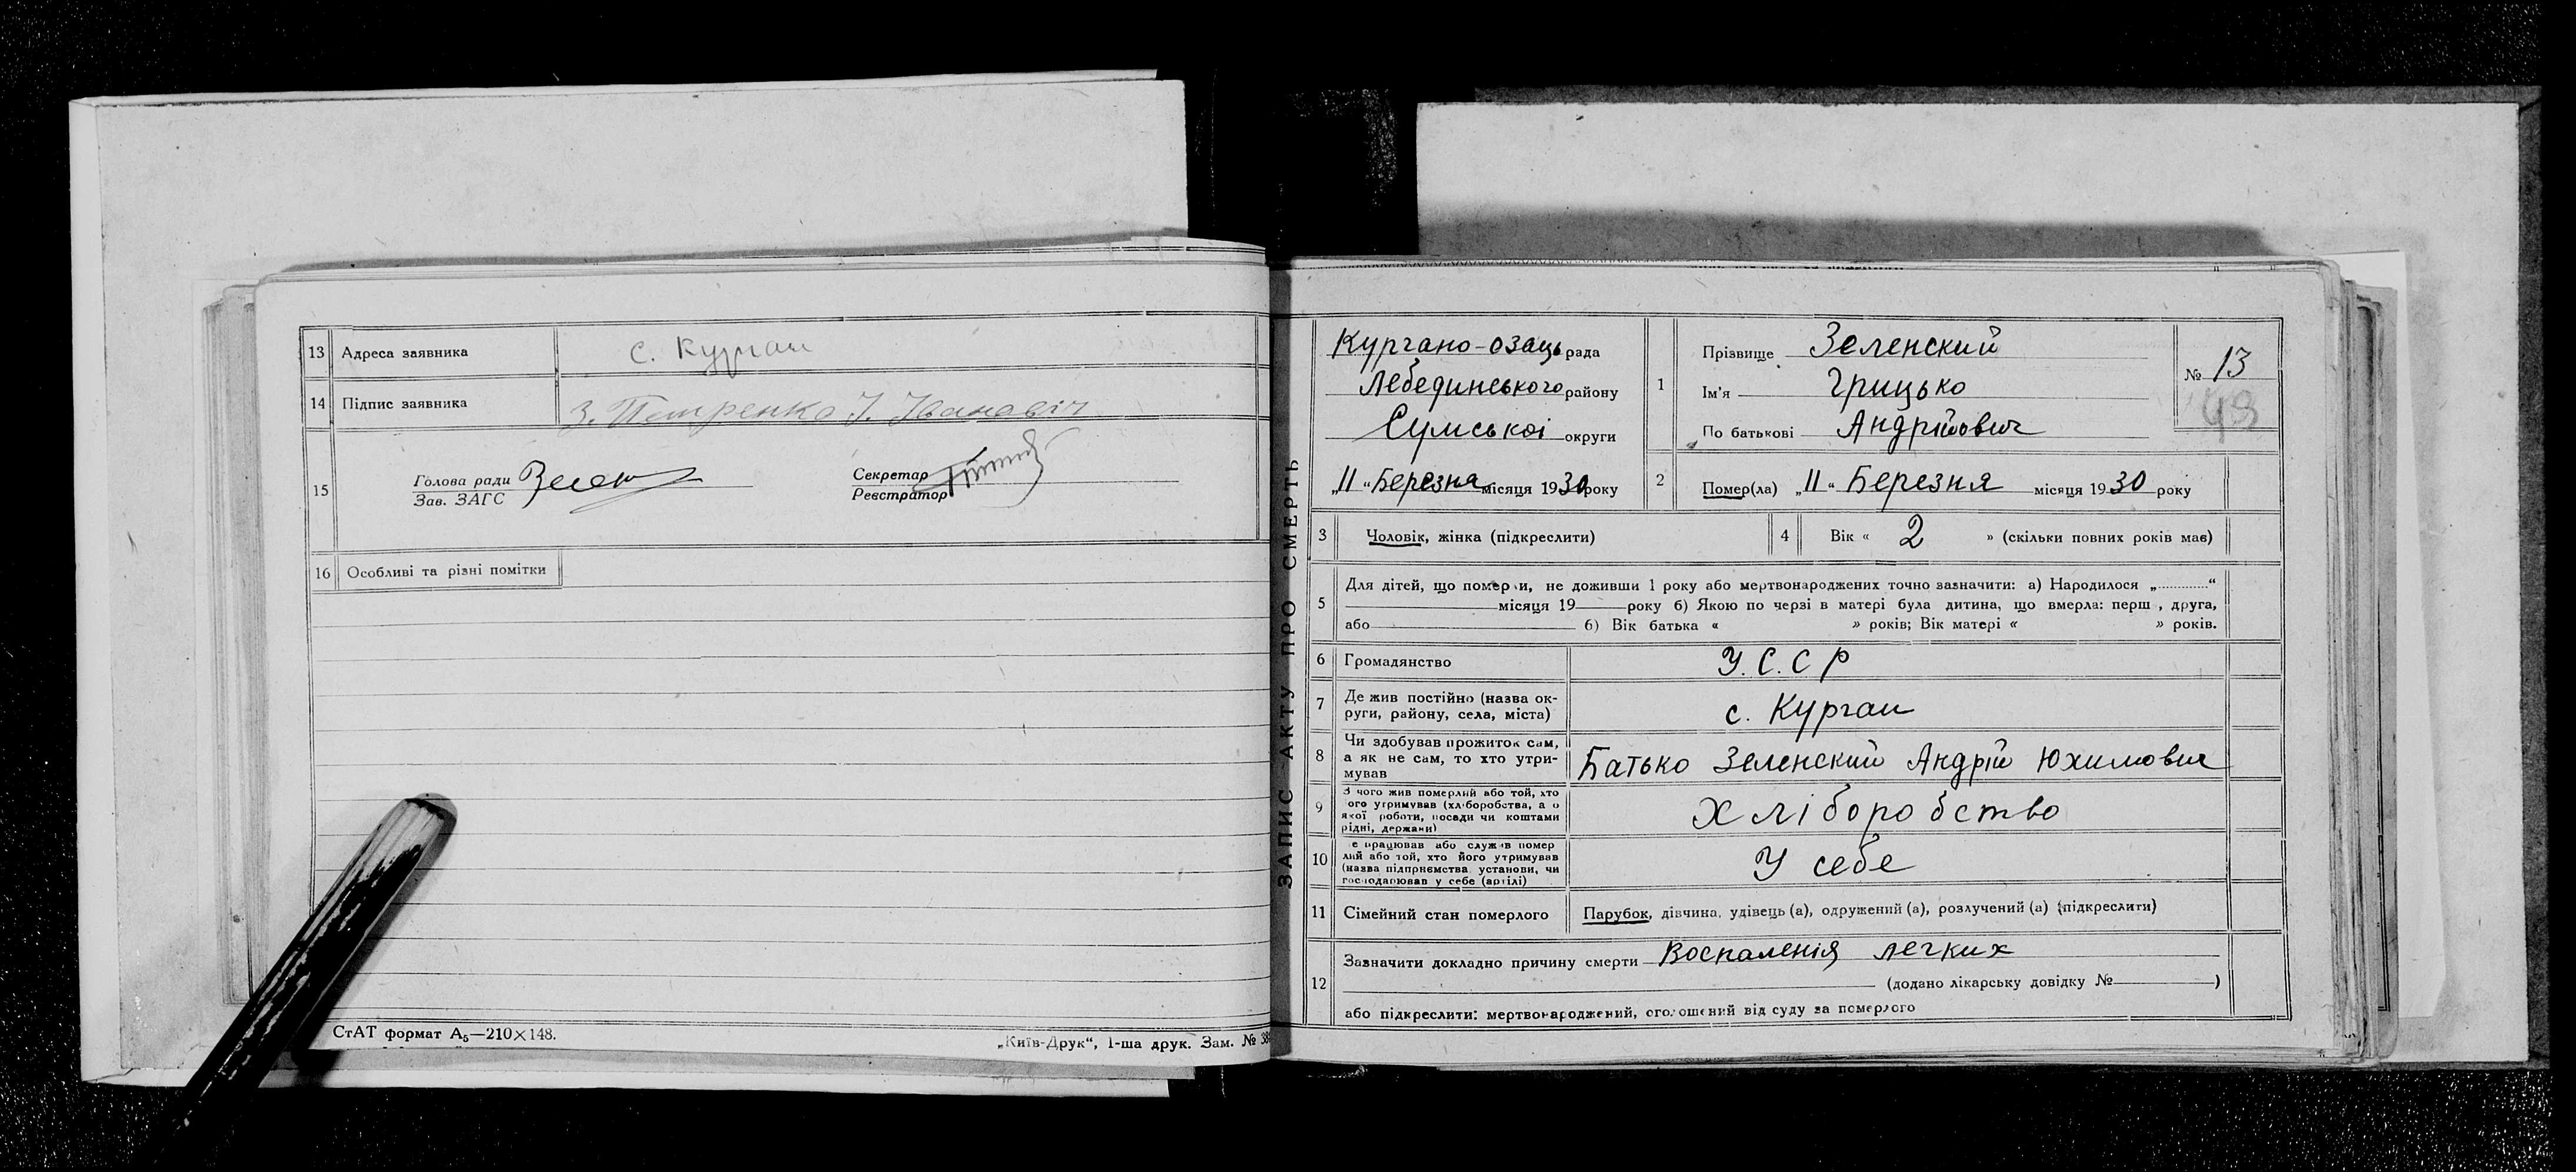 13 Адреса заявника с. Курган
14 Підпис заявника З. Петренко І. Іванавіч
15 Голова ради Секретар
Зав. ЗАГС Реєстратор
16 Особливі та різні помітки
СтАТ формат А₅—210×148.
„Київ-Друк“, 1-ша друк. Зам. № 38
ЗАПИС АКТУ ПРО СМЕРТЬ
Кургано-озаць рада
Лебединського району
Сумської округи
„11“ Березня місяця 1930 року
1 Прізвище Зеленский
Ім'я Грицько
По батькові Андрійович
№ 13
48
2 Помер(ла) „11“ Березня місяця 1930 року
3 Чоловік, жінка (підкреслити)
4 Вік « 2 » (скільки повних років має)
5 Для дітей, що померли, не доживши 1 року або мертвонароджених точно зазначити: а) Народилося „............“
місяця 19 року б) Якою по черзі в матері була дитина, що вмерла: перш , друга,
або б) Вік батька « » років; Вік матері « » років.
6 Громадянство У.С.С Р
7 Де жив постійно (назва ок-
руги, району, села, міста) с. Курган
8 Чи здобував прожиток сам,
а як не сам, то хто утри-
мував Батько Зеленский Андрій Юхимович
9 З чого жив померлий або той, хто
ого утримував (хліборобства, а о
якої роботи, посади чи коштами
рідні, держави) Хліборобство
10 е працював або служив помер
лий або той, хто його утримував
(назва підприємства установи, чи
господарював у себе (артілі) У себе
11 Сімейний стан померлого Парубок, дівчина, удівець (а), одружений (а), розлучений (а) (підкреслити)
12 Зазначити докладно причину смерти Воспаленія легких
(додано лікарську довідку № )
або підкреслити: мертвонароджений, оголошений від суду за померлого